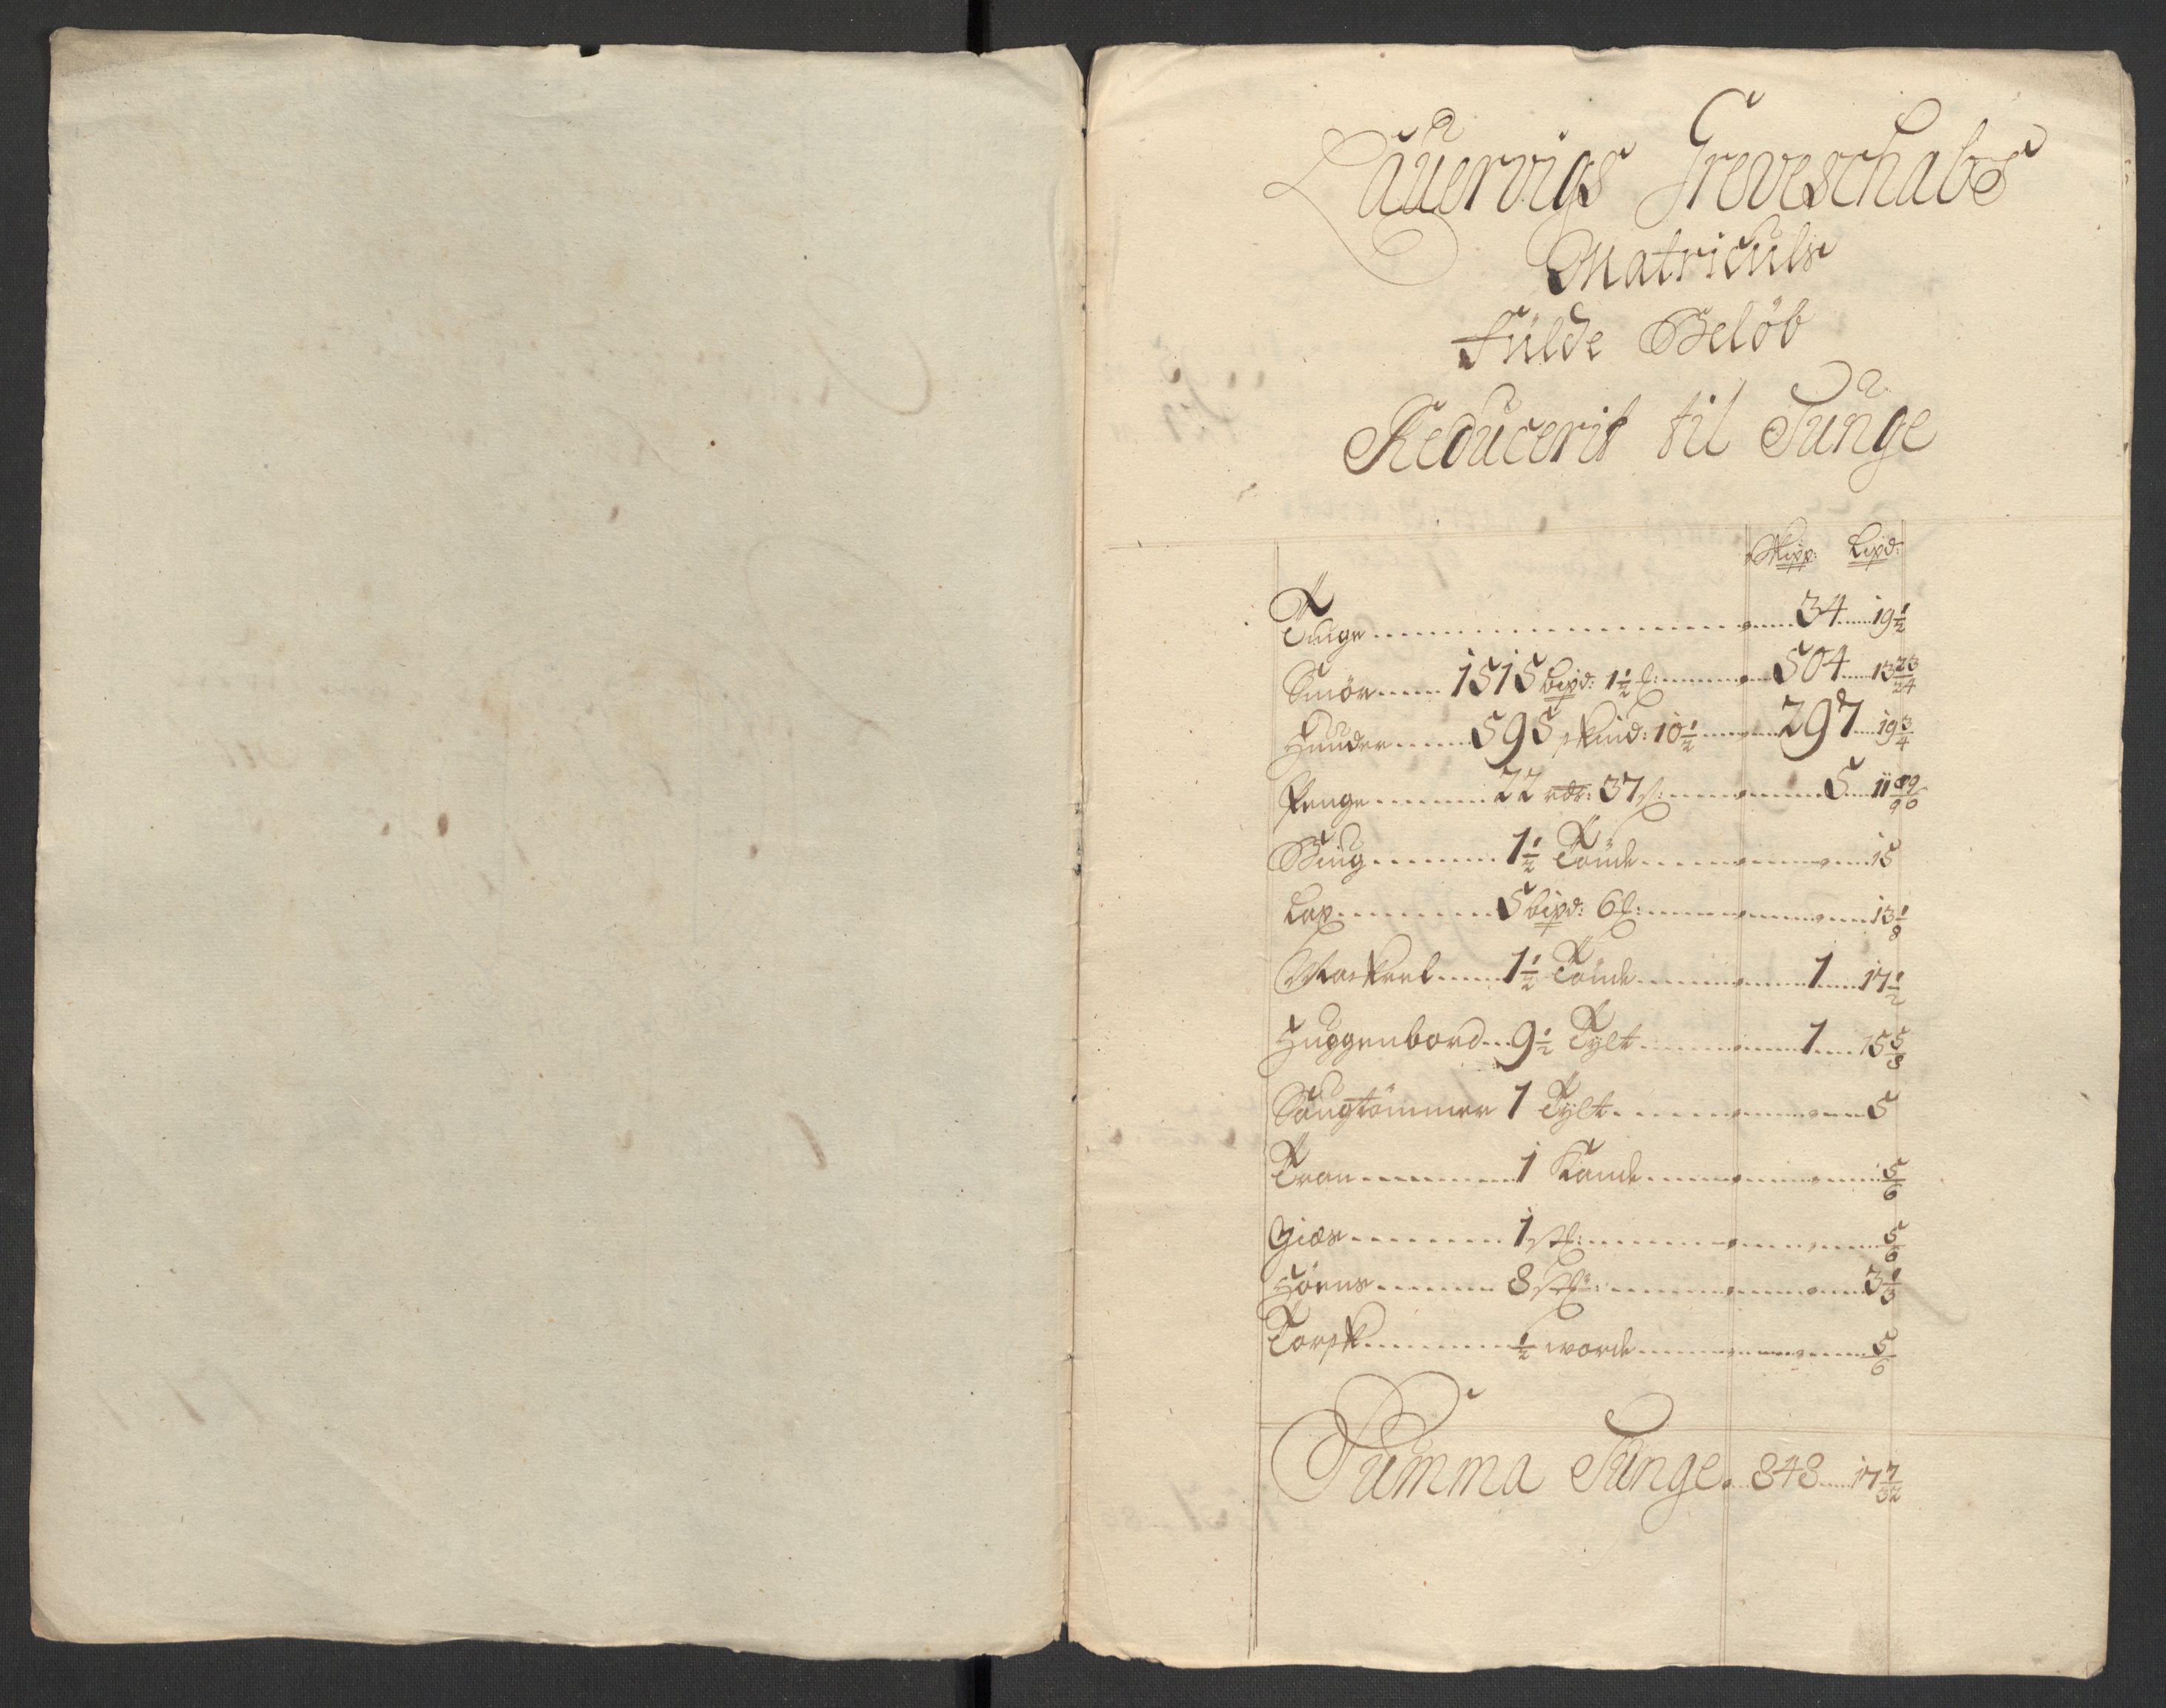 Lauervigs Greveschabs
Matriculs
Fulde Beløb
Reducerit til Tunge
Skipp: Lispd:
Tunge 34 19 1/2
Smör 1515 Bispd: 1 1/2 lb: 504 13 23/24
Huuder 595 skind: 10 1/2 297 19 3/4
Penge 22 rdr: 37 s: 5 11 89/96
Biug 1 1/2 Tönde 15
Lax 5 Bispd: 6 lb: 13 1/8
Mackrel 1 1/2 Tönde 1 17 1/2
Huggenbord 9 1/2 Tylt 1 15 5/8
Saugtömmer 1 Tylt 5
Tran 1 Kande 5/6
Giæs 1 stk: 5/6
Höens 8 stk: 3 1/3
Torsk 1/2 worde 5/6
Summa Tunge. 848 17 7/32